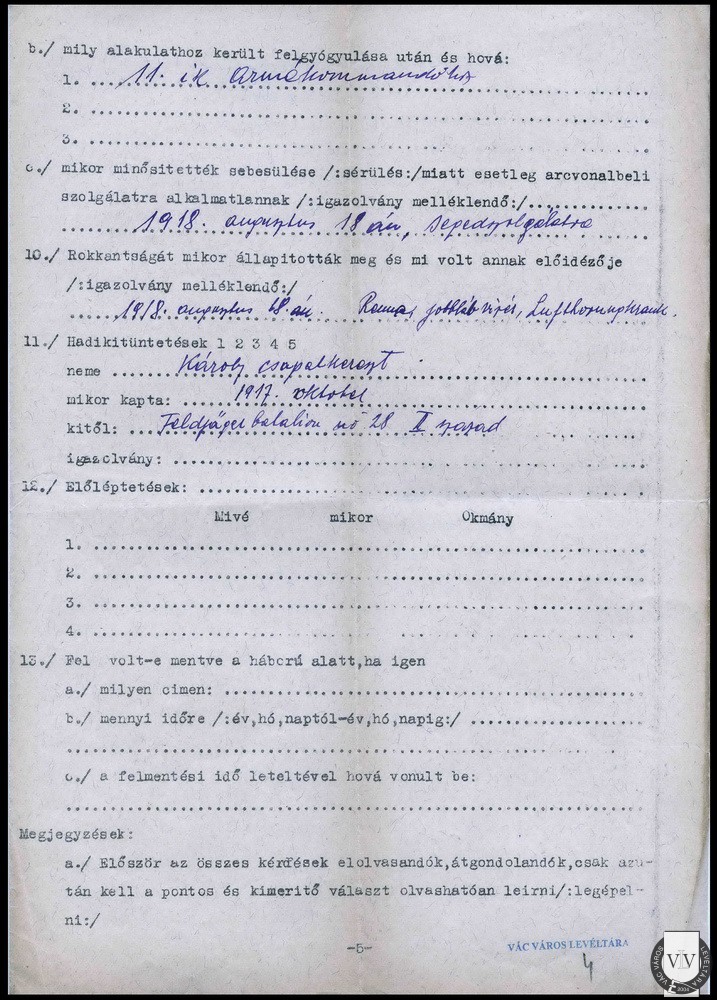 b./ mily alakulathoz került felgyógyulása után és hová:
1. ... 11. ik Armékommandóhoz
2. ...
3. ...
c./ mikor minősitették sebesülése /:sérülés:/miatt esetleg arcvonalbeli
szolgálatra alkalmatlannak /:igazolvány melléklendő:/...
1918. augusztus 18 án, segédszolgálatra
10./ Rokkantságát mikor állapitották meg és mi volt annak előidézője
/:igazolvány melléklendő:/
1918. augusztus 18 án.
11./ Hadikitüntetések 1 2 3 4 5
neme ... Károly csapatkereszt
mikor kapta: ... 1917. oktober
kitől: ... Feldjäger batalion no 28 II század
igazolvány: ...
12./ Előléptetések: ...
Mivé mikor Okmány
1. ...
2. ...
3. ...
4. ...
13./ Fel volt-e mentve a háború alatt,ha igen
a./ milyen cimen: ...
b./ mennyi időre /:év,hó,naptól-év,hó,napig:/ ...
c./ a felmentési idő leteltével hová vonult be:
Megjegyzések:
a./ Először az összes kérdések elolvasandók,átgondolandók,csak azu-
tán kell a pontos és kimeritő választ olvashatóan leirni/:legépel-
ni:/
-5-
VÁC VÁROS LEVÉLTÁRA
4
VÁC VÁROS LEVÉLTÁRA
VLV